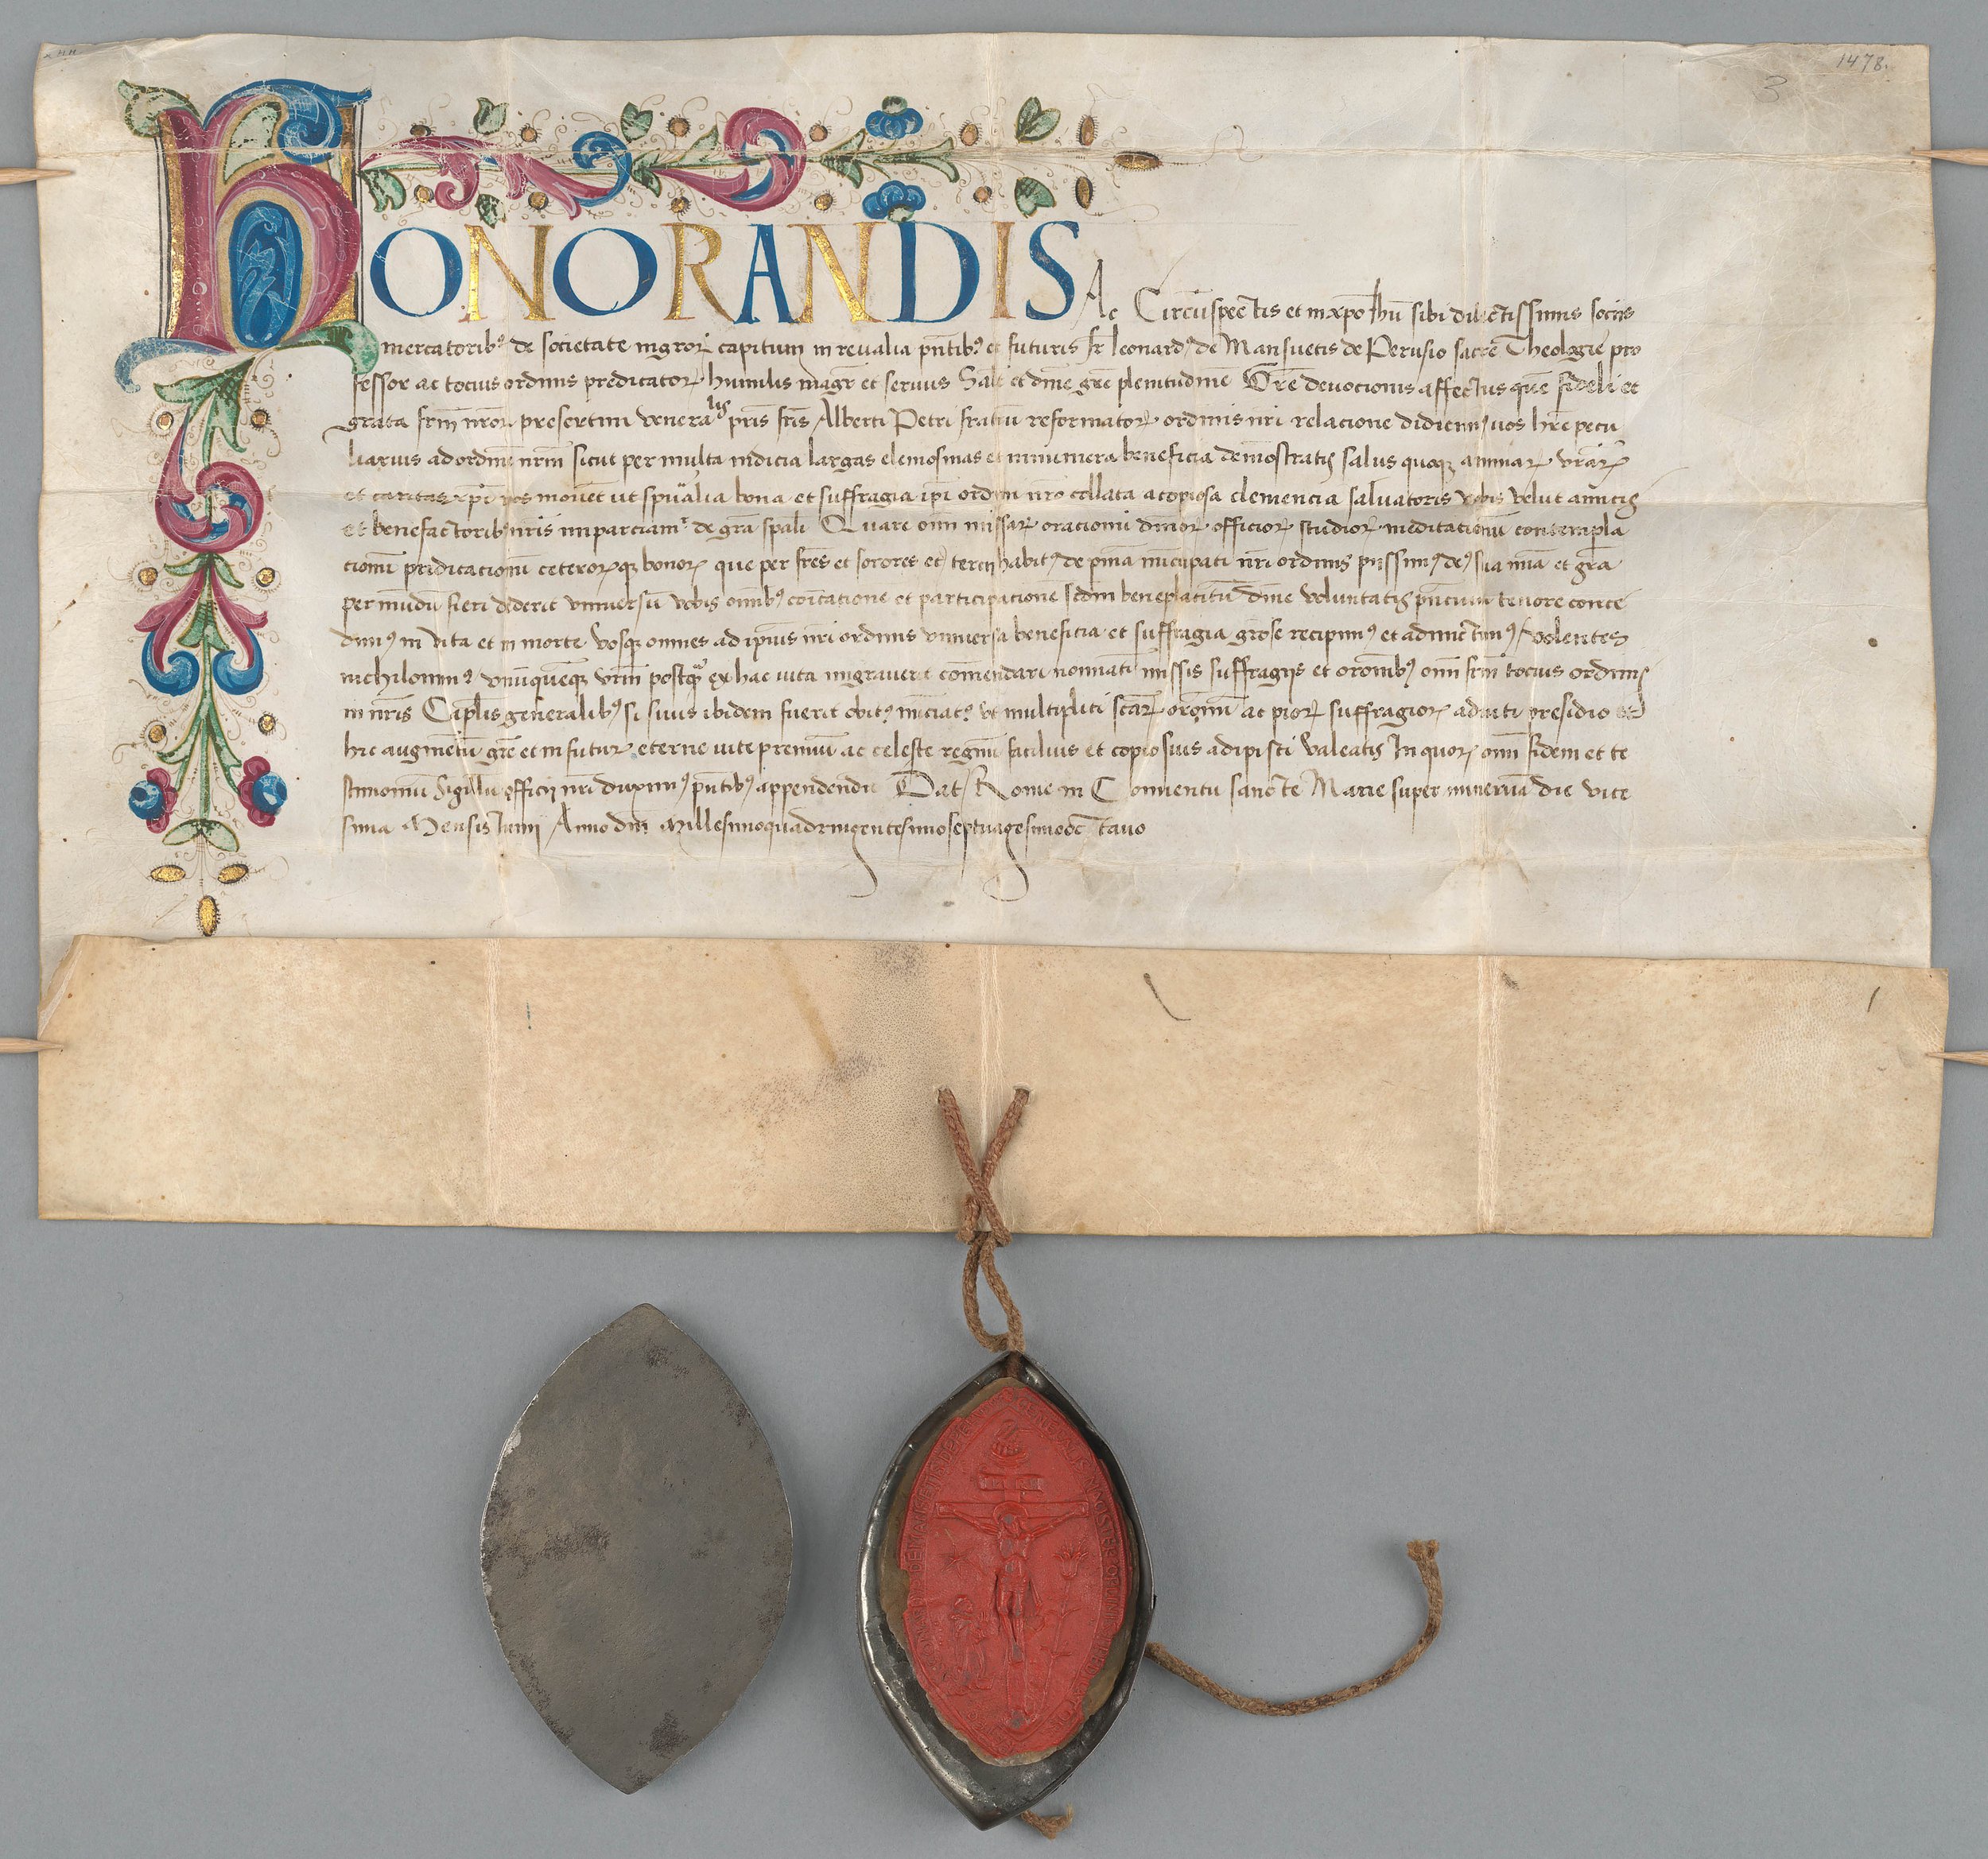 1478.
3
HONORANDIS Ac Circūspectis et in xpo Ihū sibi dilectissimis sociis
mercatorib⁹ de societate nigroꝝ capitum in reualia pn̄tib⁹ et futuris fr̄ leonard⁹ de Mansuetis de Perusio sacre Theologie pro
fessor ac tocius ordinis predicatoꝝ humilis magr̄ et seruus Salt̄ et diuīe grē plenitudinē Vr̄e deuocionis affectus quē fideli et
grata frm̄ nr̄oꝝ presertim veneralis pr̄is fr̄is Alberti Petri fratrū reformatoꝝ ordinis nr̄i relacione didicim⁹ uos hr̄e pecu
liarius ad ordinē nrm̄ sicut per multa indicia largas elemosinas et innumera beneficia demōstratis salus quoqꝫ animaꝝ vr̄aꝝ
et caritas xp̄i nos mouēt ut spūalia bona et suffragia ip̄i ordini nr̄o collata a copiosa clemencia saluatoris vobis velut amicis
et benefactorib⁹ nr̄is imparciamꝰ de grā sp̄ali Quare om̄i missaꝝ oracionū diuīoꝝ officioꝝ studioꝝ meditacionū contempla
cionū predicacionū ceteroꝝqꝫ bonoꝝ que per fr̄es et sorores et tercii habit⁹ de pn̄ia nūcupati nr̄i ordinis piissim⁹ de⁹ sua mīa et grā
per mūdū fieri dederit vniuersū vobis omib⁹ cōicatione et participatione scdm̄ beneplacitū diuīe voluntatis pn̄cium tenore conce
dim⁹ in vita et in morte vosqꝫ omnes ad ipius nr̄i ordinis vniuersa beneficia et suffragia grōse recipim⁹ et adiunctim⁹ / volentes
nichilomin⁹ vnūquēqꝫ vrm̄ postqꝫ ex hac vita migrauerit cōmendari nominatī missis suffragiis et oronib⁹ om̄i frm̄ tocius ordinis
in nr̄is Caplis generalib⁹ si suus ibidem fuerit obit⁹ nūciat⁹ vt multiplici scaꝝ oronū ac pioꝝ suffragioꝝ adiuti presidio et
hic augmētū grē et in futuꝝ eterne uite premiū ac celeste regnū facilius et copiosius adipisci valeatis In quoꝝ om̄i fidem et te
stimoniū Sigillū officii nr̄i duxim⁹ pn̄tib⁹ appendendū Dat / Rome in Conuentu sancte Marie super mineruā die vice
sima Mensis Iunii Anno dn̄i Millesimoquadringentesimoseptuagesimooctauo